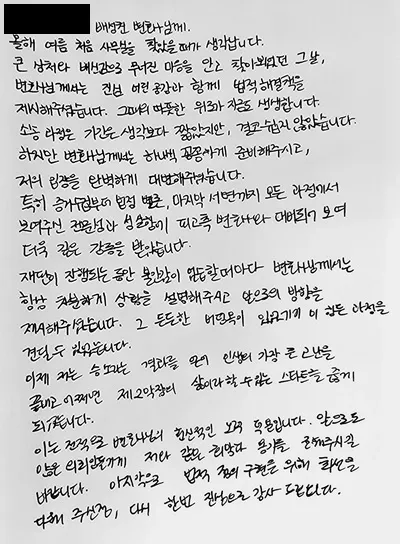 변호사님께.
올해 여름 처음 사무실을 찾았을때가 생각납니다.
큰 상처와 배신감으로 무너진 마음을 안고 찾아뵈었던 그날,
변호사님께서는 진심 어린 공감과 함께 법적 해결책을
제시해주셨습니다. 그때의 따뜻한 위로가 지금도 생생합니다.
소송 과정은 기간은 생각보다 짧았지만, 결코 쉽지 않았습니다.
하지만 변호사님께서는 하나하나 꼼꼼하게 준비해주시고,
저의 입장을 완벽하게 대변해주셨습니다.
특히 증거수집부터 법정 변론, 마지막 서면까지 모든 과정에서
보여주신 전문성과 성실함이 피고측 변호사와 대비되어 보여
더욱 깊은 감동을 받았습니다.
재판이 진행되는 동안 불안감이 엄습할때마다 변호사님께서는
항상 차분하게 상황을 설명해주시고 앞으로의 방향을
제시해주셨습니다. 그 든든한 버팀목이 있었기에 이 힘든 과정을
견딜 수 있었습니다.
이제 저는 승소라는 결과를 안고 인생의 가장 큰 고난을
끝내고 어쩌면 제2막장의 삶이라 할 수 있는 스타트를 끊게
되었습니다.
이는 전적으로 변호사님의 헌신적인 노력 덕분입니다. 앞으로도
많은 의뢰인들에게 저와 같은 희망과 용기를 전해주시길
바랍니다. 마지막으로 법적 정의 구현을 위해 최선을
다해 주신점, 다시 한번 진심으로 감사 드립니다.